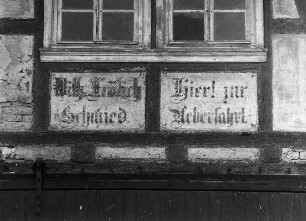 Wilh. Frölich
Schmied.
Hier! zur
Ueberfahrt.